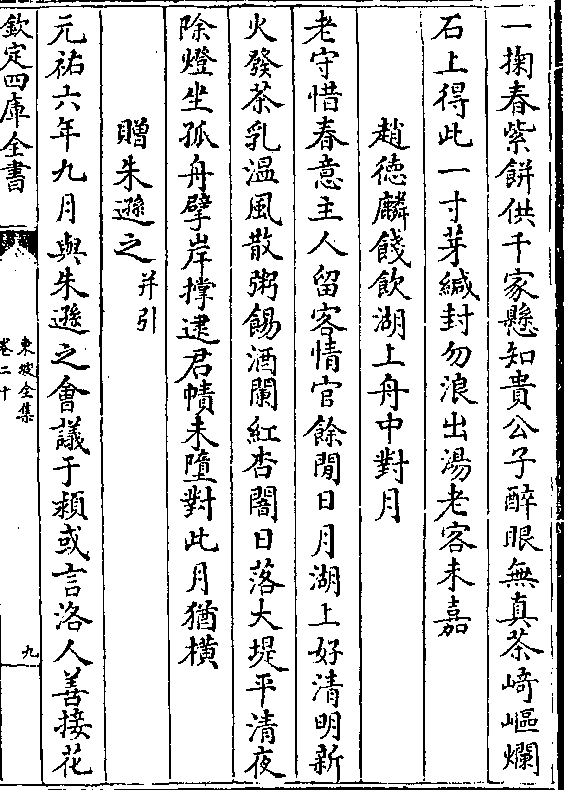 一掬春紫餅供千家懸知貴公子醉眼無真茶崎嶇爛
石上得此一寸芽緘封勿浪出湯老客未嘉
趙德麟餞飲湖上舟中對月
老守惜春意主人留客情官餘閒日月湖上好清明新
火發茶乳温風散粥餳酒闌紅杏闇日落大堤平清夜
除燈坐孤舟擘岸撐逮君幘未墮對此月猶橫
贈朱遜之并引
元祐六年九月與朱遜之會議于潁或言洛人善接花
欽定四庫全書
東坡全集
卷二十
九